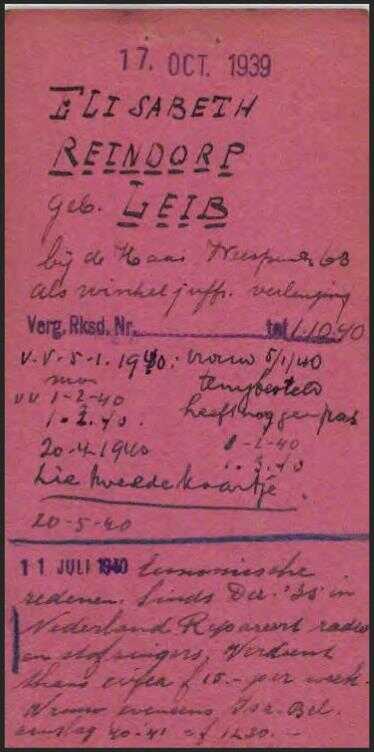 17. OCT. 1939
ELISABETH
REINDORP
geb. LEIB
bij de Haas 63
als winkeljuffr. verlenging
Verg. Rksd. Nr. tot 1.10.40
v.v. 5-1. 1940: vrouw 5/1/40
v v 1-2-40
1.2.40. heeft nog geen pas
20-4-1940 1-2-40
zie tweede kaartje.
20-5-40
11 JULI 1940 Economische
redenen. Sinds Dec. '35 in
Nederland Repareert radio
en stofzuigers, Verdient
thans circa f 15.- per week.
Vrouw eveneens Isr. Bel.
aanslag 40-41 f 12.30.-